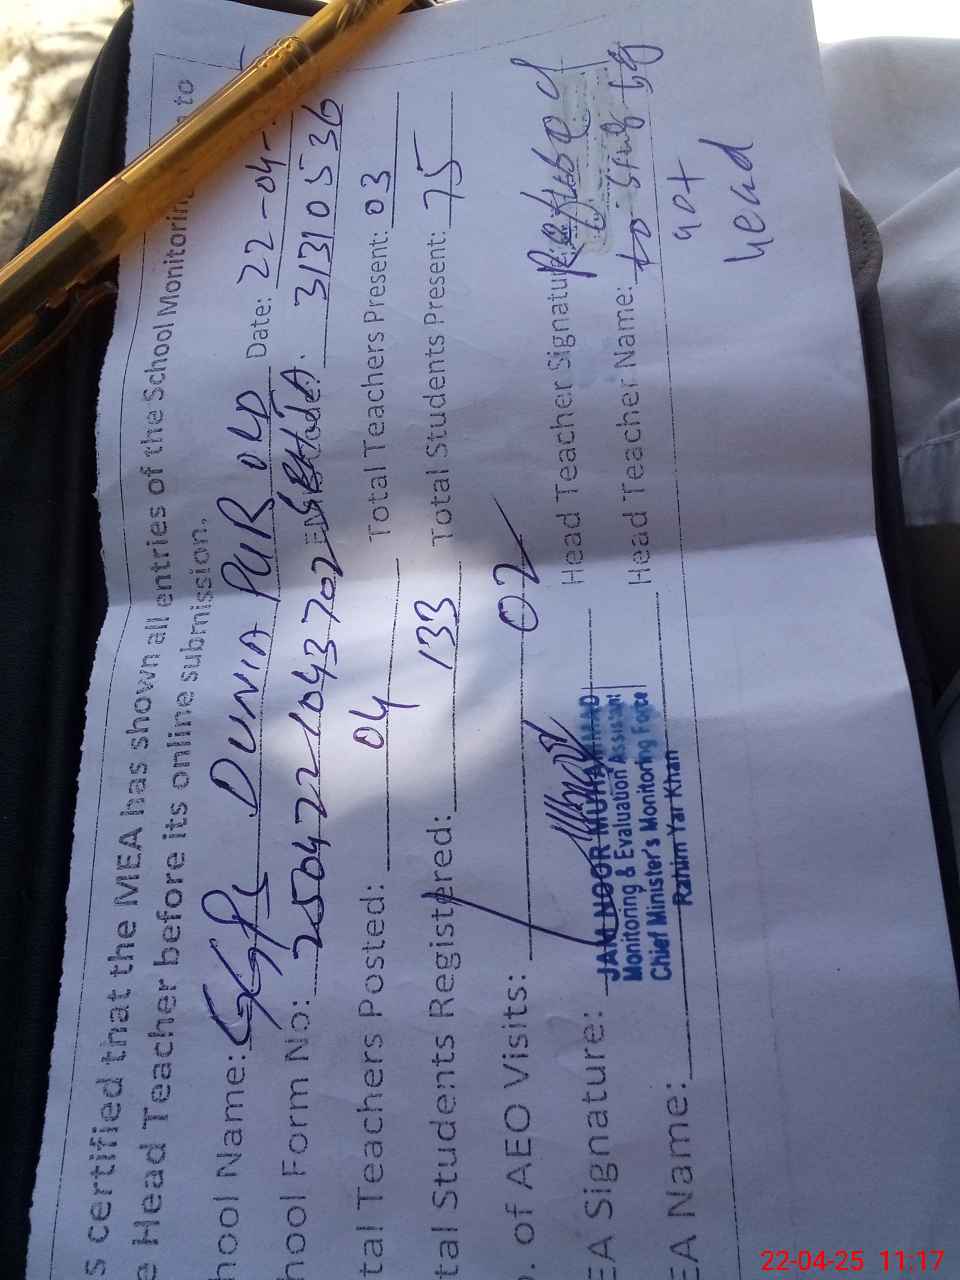 s certified that the MEA has shown all entries of the School Monitoring to
e Head Teacher before its online submission.
hool Name: GGPS DUNIA PUR OLD Date: 22-04-
hool Form No: 2504221043702 31310536
tal Teachers Posted: 04 Total Teachers Present: 03
tal Students Registered: 133 Total Students Present: 75
. of AEO Visits: 02
EA Signature: Head Teacher Signature: Refused
JAM NOOR MUHAMMAD
Monitoring & Evaluation Assistant
Chief Minister's Monitoring Force
Rahim Yar Khan
EA Name: Head Teacher Name: to sing by
not
head
22-04-25 11:17